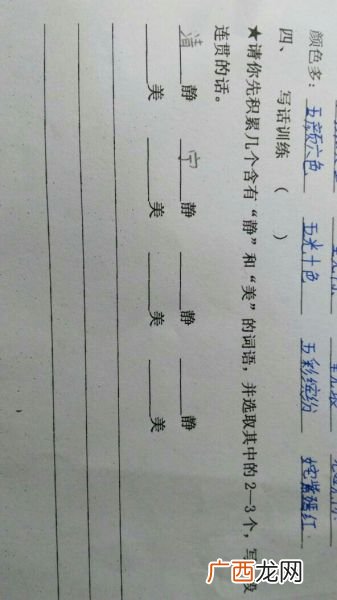 颜色多：五颜六色 五光十色 五彩缤纷 姹紫嫣红
四、写话训练（ ）
★请你先积累几个含有“静”和“美”的词语，并选取其中的2—3个，写 段
连贯的话。
清静 宁静 ____静 ____静
____美 ____美 ____美 ____美
广西龙网